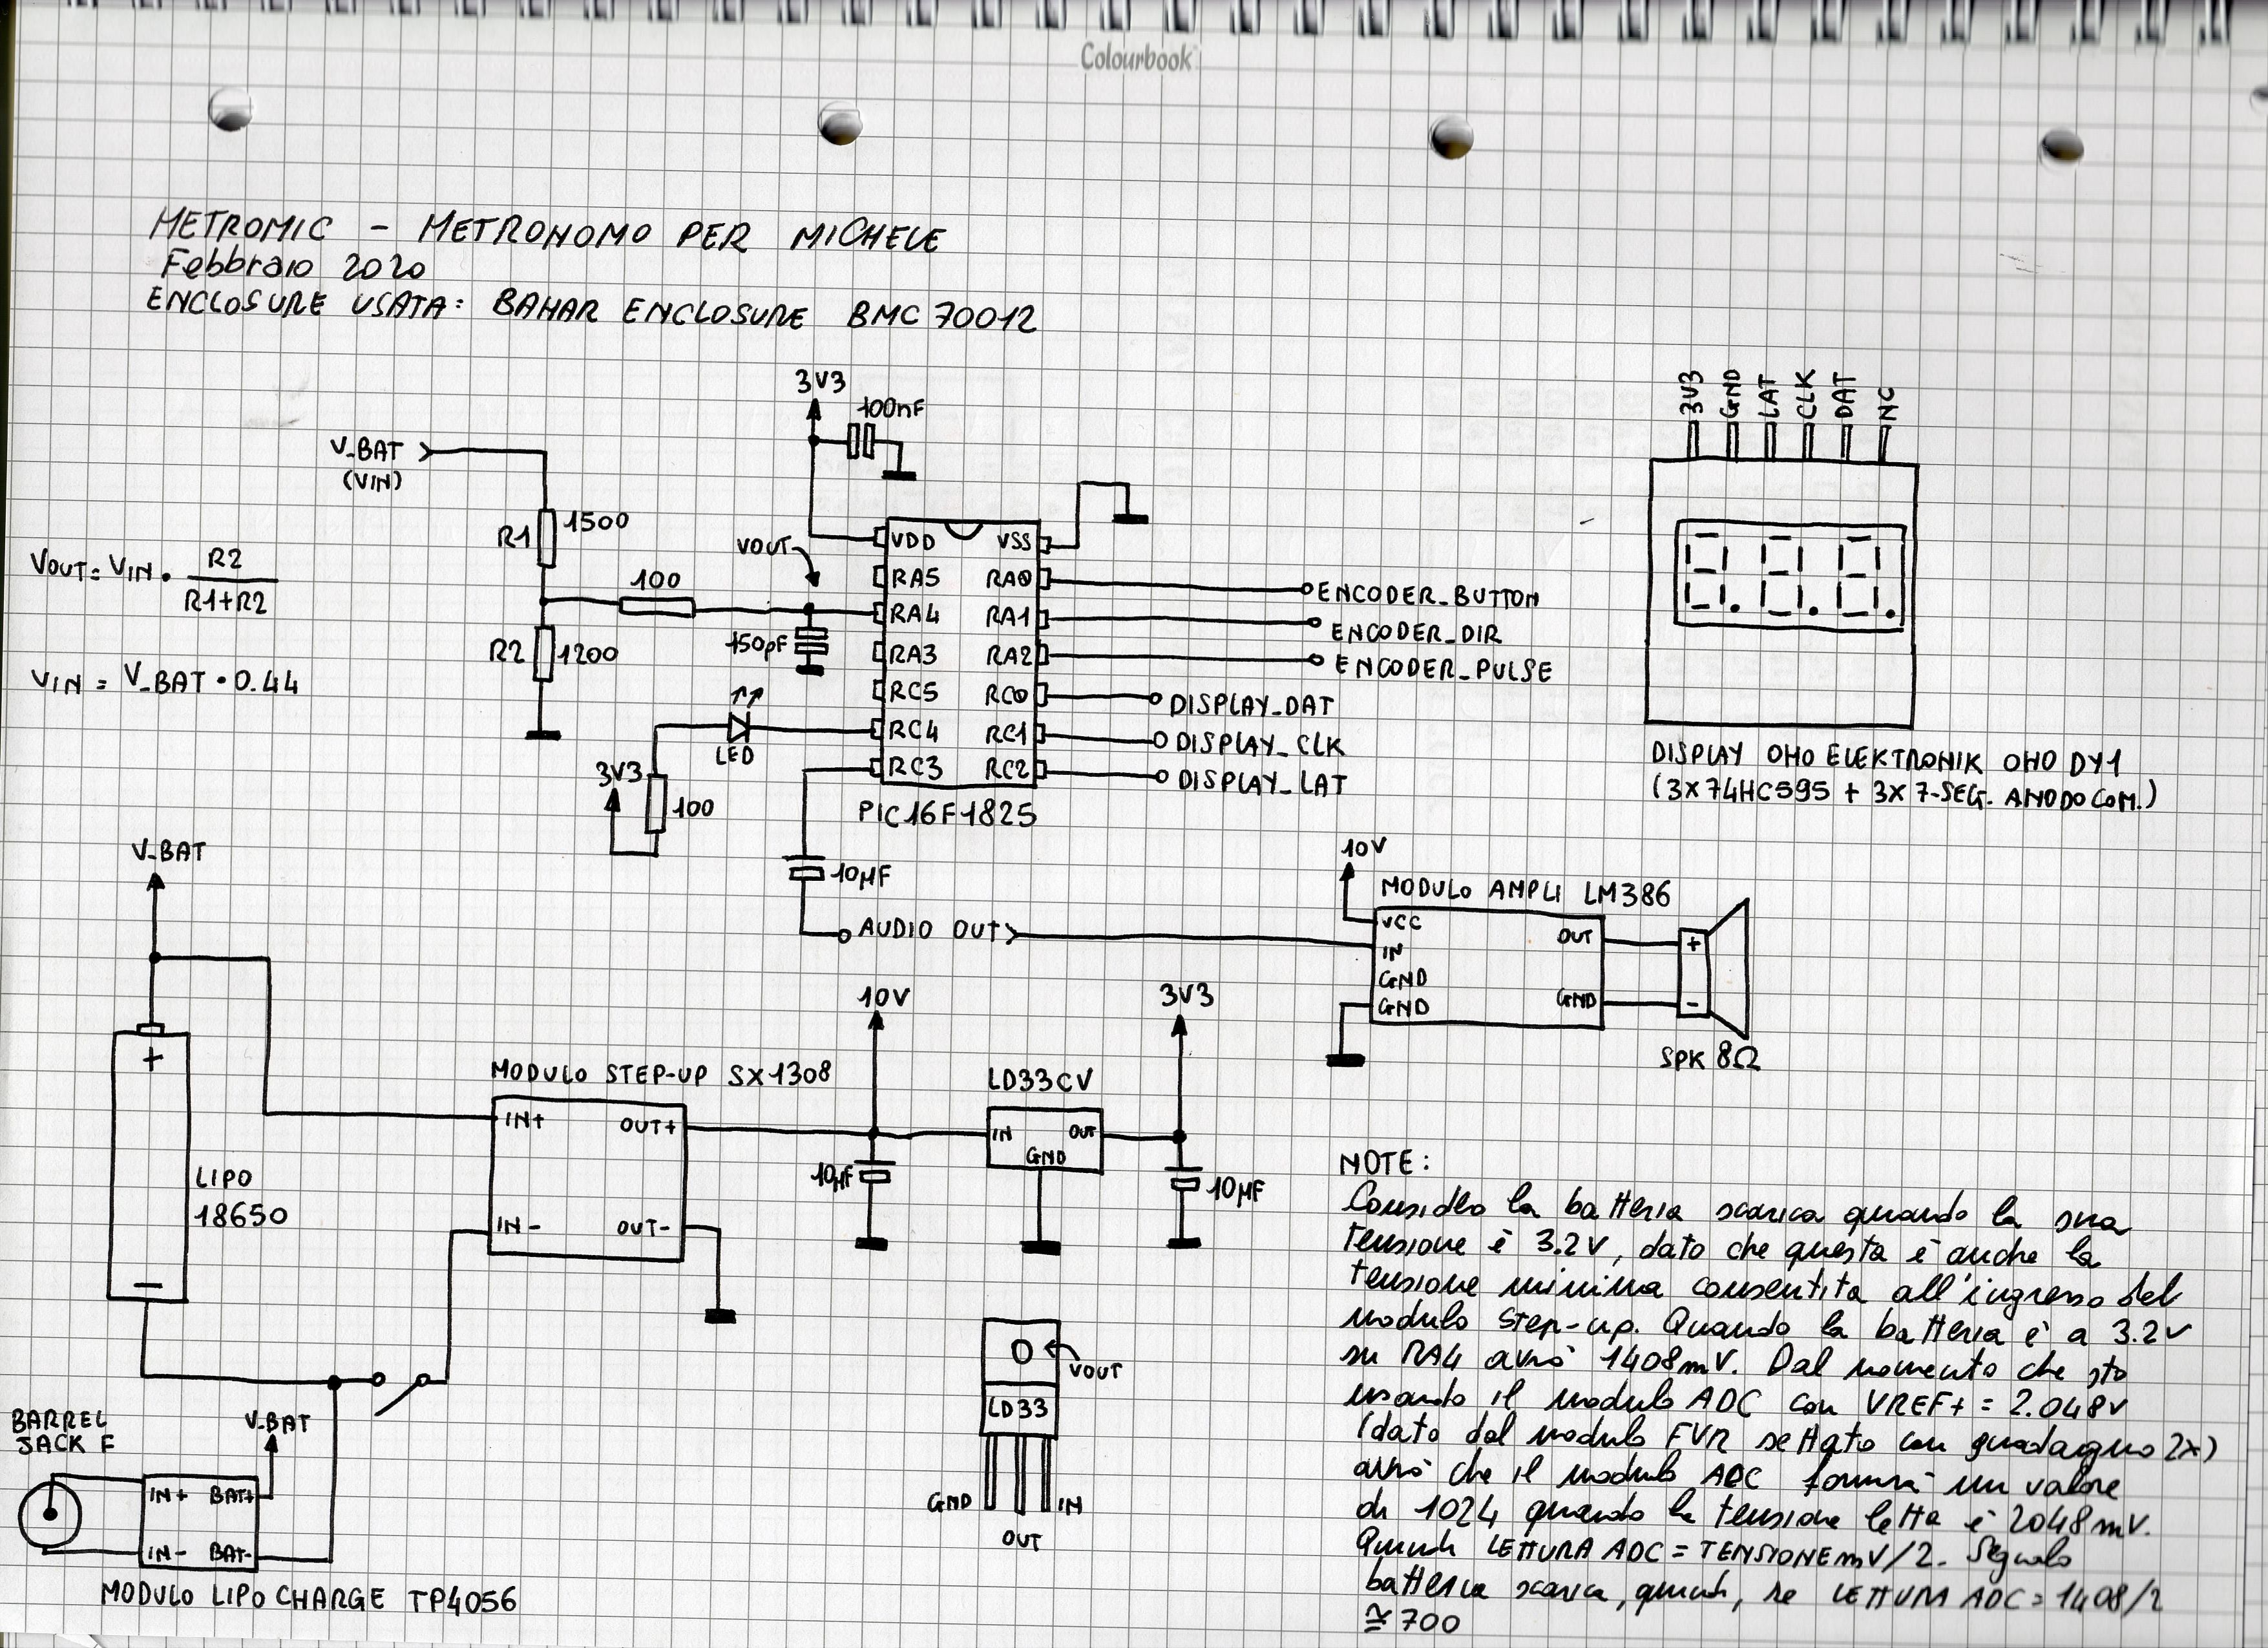 Colourbook
METROMIC - METRONOMO PER MICHELE
Febbraio 2020
ENCLOSURE USATA: BAHAR ENCLOSURE BMC 70012
3V3
100nF
V_BAT
(VIN)
R1
1500
VOUT = VIN • R2
R1+R2
VOUT
100
R2
1200
150pF
VIN = V_BAT • 0.44
VDD
VSS
RA5
RA0
RA4
RA1
RA3
RA2
RC5
RC0
RC4
RC1
RC3
RC2
PIC16F1825
ENCODER_BUTTON
ENCODER_DIR
ENCODER_PULSE
DISPLAY_DAT
DISPLAY_CLK
DISPLAY_LAT
LED
3V3
100
10µF
AUDIO OUT
3V3
GND
LAT
CLK
DAT
NC
8.8.8.
DISPLAY OHO ELEKTRONIK OHO DY1
(3X74HC595 + 3X 7-SEG. ANODO COM.)
10V
MODULO AMPLI LM386
VCC
IN
GND
GND
OUT
GND
+
-
SPK 8Ω
V_BAT
+
-
LIPO
18650
MODULO STEP-UP SX1308
IN+
OUT+
IN-
OUT-
10V
10µF
LD33CV
IN
OUT
GND
3V3
10µF
BARREL
JACK F
V_BAT
IN+
BAT+
IN-
BAT-
MODULO LIPO CHARGE TP4056
VOUT
LD33
GND
IN
OUT
NOTE:
Considero la batteria scarica quando la sua
tensione è 3.2V, dato che questa è anche la
tensione minima consentita all'ingresso del
modulo step-up. Quando la batteria è a 3.2V
su RA4 avrò 1408mV. Dal momento che sto
usando il modulo ADC con VREF+ = 2.048V
(dato dal modulo FVR settato con guadagno 2x)
avrò che il modulo ADC fornirà un valore
di 1024 quando la tensione letta è 2048mV.
Quindi LETTURA ADC = TENSIONE mV/2. Segnalo
batteria scarica, quindi, se LETTURA ADC = 1408/2
≅ 700